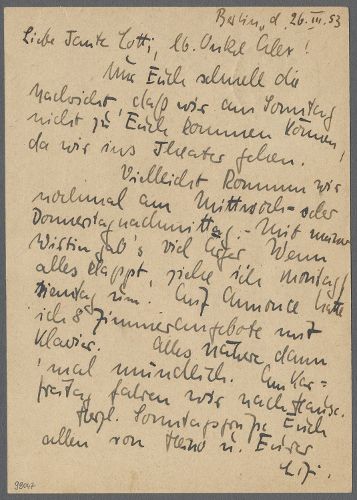 Berlin, d. 26. III. 53
Liebe Tante Lotti, lb. Onkel Alex!
Nur Euch schnell die
Nachricht, daß wir am Sonntag
nicht zu Euch kommen können,
da wir ins Theater gehen.
Vielleicht kommen wir
nochmal am Mittwoch- oder
Donnerstagnachmittag. - Mit meiner
Wirtin gab's viel Ärger. Wenn
alles klappt, ziehe ich Montag/
Dienstag um. Auf Annonce hatte
ich 8 Zimmerangebote mit
Klavier. Alles nähere dann
'mal mündlich. Am Kar=
freitag fahren wir nach Hause.
Herzl. Sonntagsgrüße Euch
allen von u. Eurer
98047